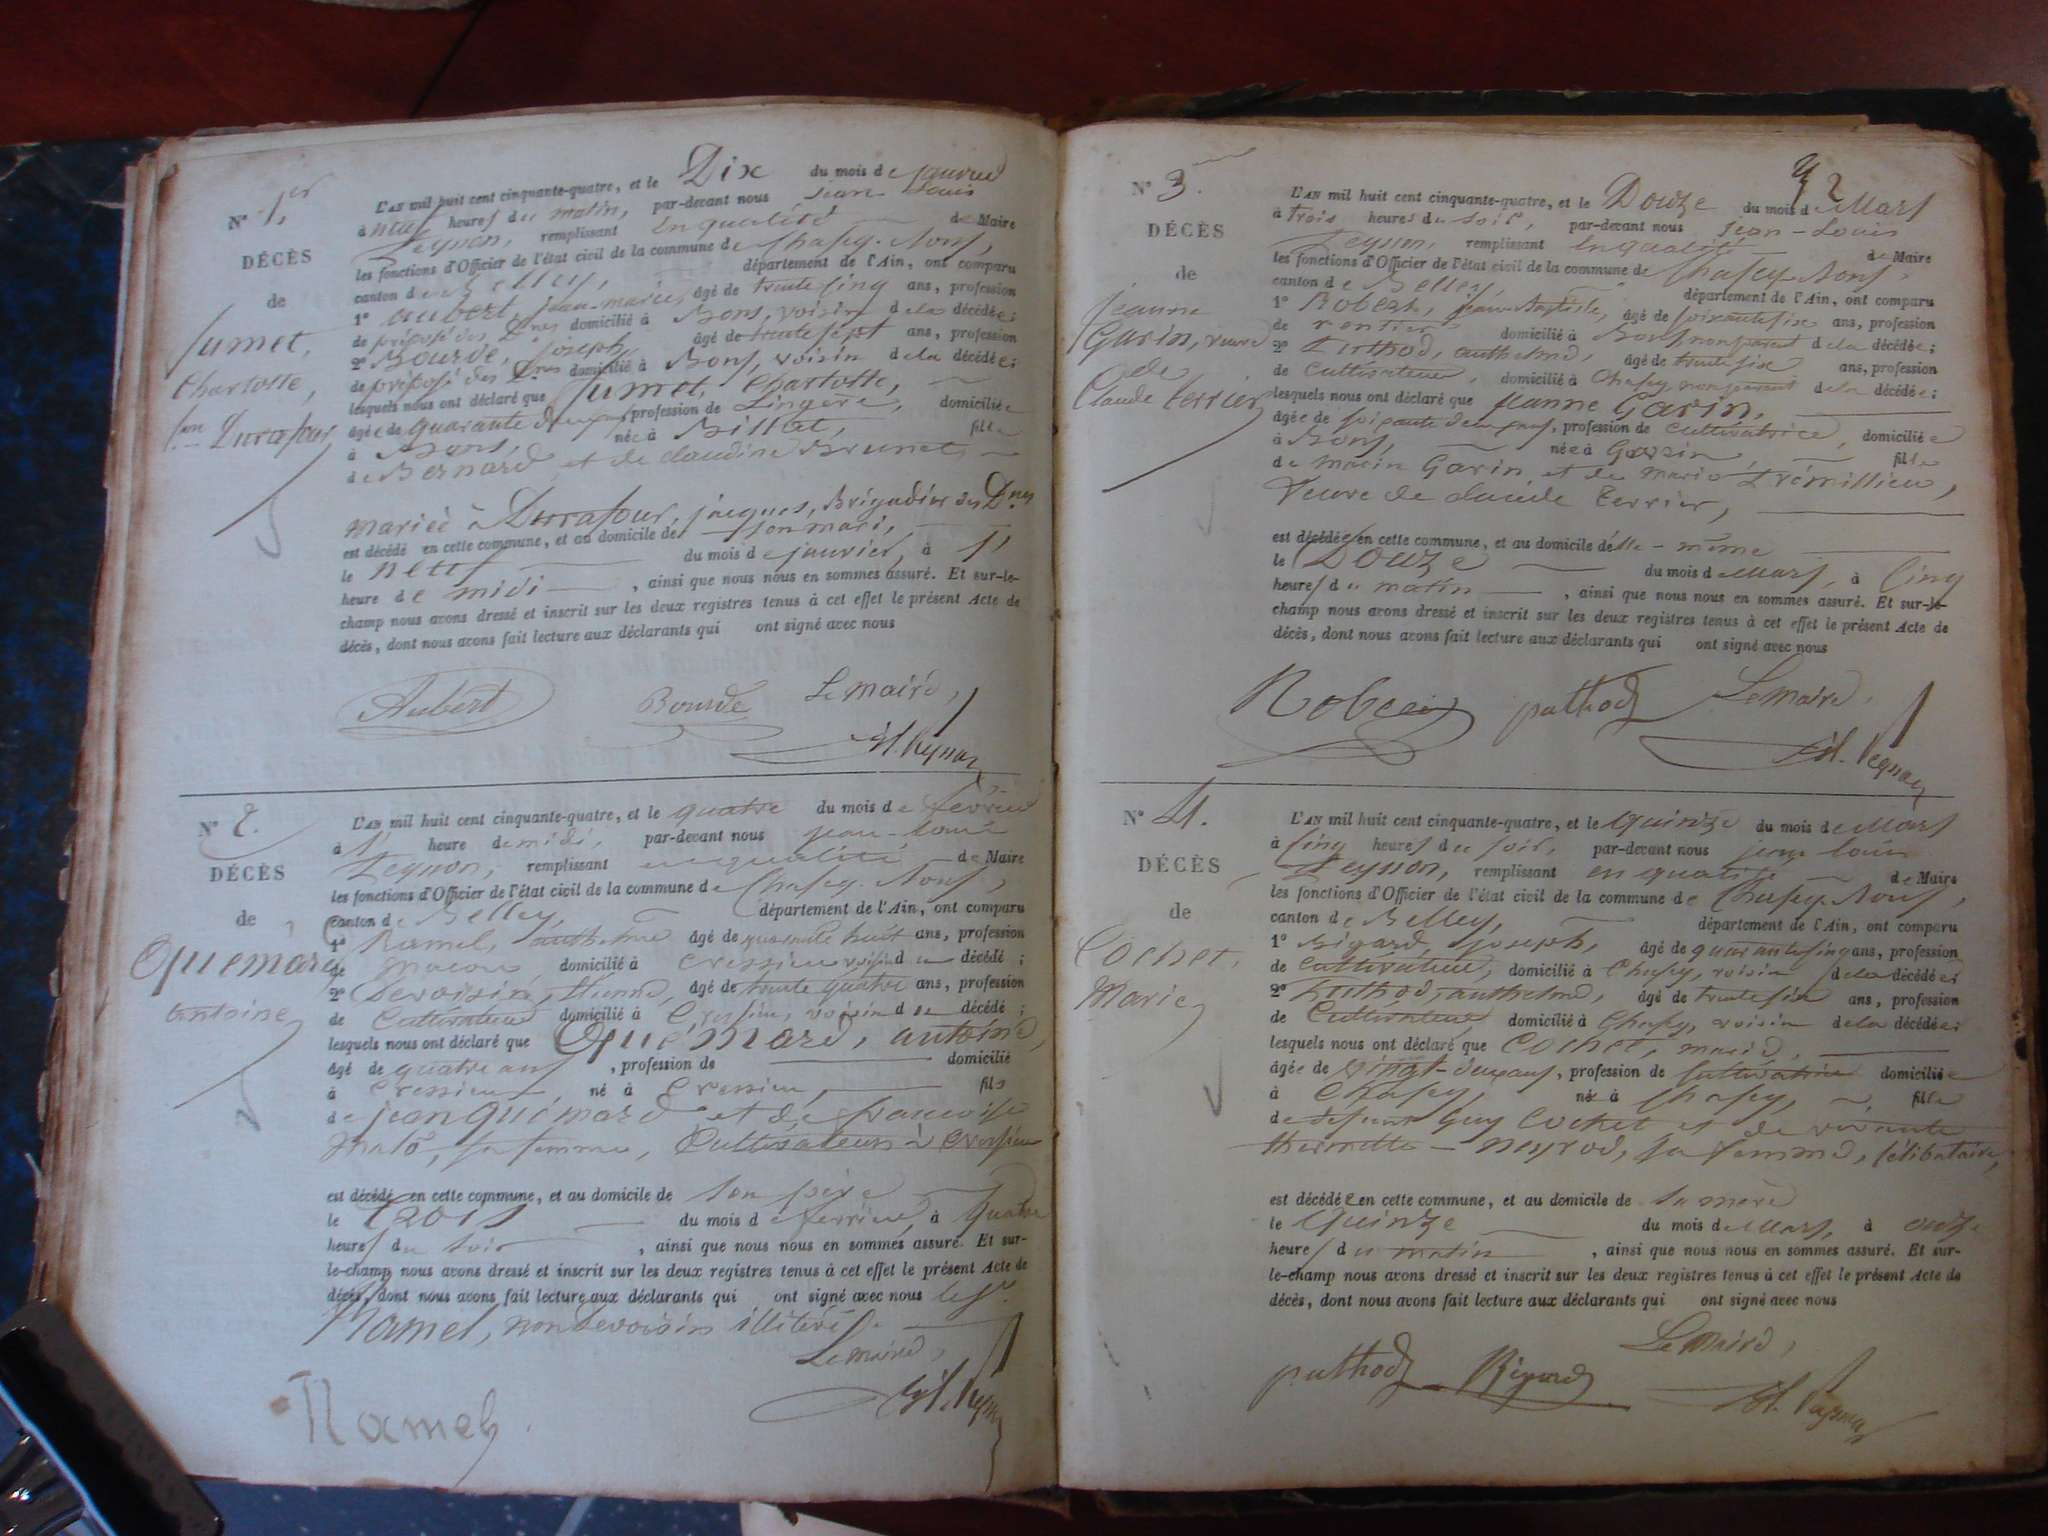 N° 1.er
DÉCÈS
de
Jumet,
Charlotte,
L'AN mil huit cent cinquante-quatre, et le Dix du mois de janvier
à neuf heures du matin, par-devant nous Jean Louis
Peysson, remplissant en qualité de Maire
les fonctions d'Officier de l'état civil de la commune de Chazey-Bons,
canton de Belley, département de l'Ain, ont comparu
1° Aubert, jean-marie, âgé de trente cinq ans, profession
de préposé des D.nes domicilié à Bons, voisin de la décédée;
2° Bourde, joseph, âgé de trente sept ans, profession
de préposé des D.nes domicilié à Bons, voisin de la décédée;
lesquels nous ont déclaré que Jumet, Charlotte,
âgée de quarante deux ans profession de Lingère, domiciliée
à Bons, née à Billiat, fille
de Bernard et de claudine Brunet
mariée à Durafour, jacques, Brigadier des D.nes
est décédé en cette commune, et au domicile de son mari,
le neuf du mois de janvier, à 1'
heure de midi, ainsi que nous nous en sommes assuré. Et sur-le-
champ nous avons dressé et inscrit sur les deux registres tenus à cet effet le présent Acte de
décès, dont nous avons fait lecture aux déclarants qui ont signé avec nous
Aubert Bourde Le maire,
N° 2.
DÉCÈS
de
Quémard
antoine
L'AN mil huit cent cinquante-quatre, et le quatre du mois de février
à 1' heure de midi, par-devant nous jean-louis
Peysson, remplissant en qualité de Maire
les fonctions d'Officier de l'état civil de la commune de Chazey-Bons,
canton de Belley, département de l'Ain, ont comparu
1° Ramel, anthelme âgé de quarante huit ans, profession
de maçon domicilié à Cressieu voisin du décédé;
2° Devoisin, Etienne, âgé de trente quatre ans, profession
de Cultivateur domicilié à Cressieu, voisin du décédé;
lesquels nous ont déclaré que Quémard, antoine,
âgé de quatre ans, profession de domicilié
à Cressieu né à Cressieu, fils
de jean Quémard et de françoise
sa femme, Cultivateurs à Cressieu
est décédé en cette commune, et au domicile de son père
le trois du mois de février, à quatre
heures du soir, ainsi que nous nous en sommes assuré. Et sur-
le-champ nous avons dressé et inscrit sur les deux registres tenus à cet effet le présent Acte de
décès, dont nous avons fait lecture aux déclarants qui ont signé avec nous
Ramel, non Devoisin illitéré.
Le maire,
Ramel
N° 3.
DÉCÈS
de
jeanne
Garin, veuve
de
Claude terrier
L'AN mil huit cent cinquante-quatre, et le Douze du mois de Mars
à trois heures du soir, par-devant nous jean-Louis
Peysson, remplissant en qualité de Maire
les fonctions d'Officier de l'état civil de la commune de Chazey-Bons
canton de Belley département de l'Ain, ont comparu
1° Robert, jean-Baptiste, âgé de soixante six ans, profession
de rentier domicilié à Bons non parent de la décédée;
2° Puthod, anthelme, âgé de trente six ans, profession
de cultivateur, domicilié à Chazey, non parent de la décédée;
lesquels nous ont déclaré que jeanne Garin,
âgée de soixante deux ans, profession de cultivatrice, domiciliée
à Bons, née à fille
de marin Garin et de marie Trémillieu,
Veuve de claude terrier,
est décédée en cette commune, et au domicile d'elle-même
le Douze du mois de Mars, à Cinq
heures du matin, ainsi que nous nous en sommes assuré. Et sur-le-
champ nous avons dressé et inscrit sur les deux registres tenus à cet effet le présent Acte de
décès, dont nous avons fait lecture aux déclarants qui ont signé avec nous
Robert puthod Le Maire,
N° 4.
DÉCÈS
de
Cochet,
Marie
L'AN mil huit cent cinquante-quatre, et le quinze du mois de Mars
à cinq heures du soir, par-devant nous jean louis
Peysson, remplissant en qualité de Maire
les fonctions d'Officier de l'état civil de la commune de Chazey-Bons,
canton de Belley, département de l'Ain, ont comparu
1° Rigard, joseph, âgé de quarante cinq ans, profession
de cultivateur, domicilié à Chazey, voisin de la décédée;
2° Puthod, anthelme, âgé de trente six ans, profession
de Cultivateur domicilié à Chazey, voisin de la décédée;
lesquels nous ont déclaré que Cochet, marie,
âgée de vingt-deux ans, profession de cultivatrice domiciliée
à Chazey, née à Chazey, fille
de défunt Guy Cochet et de vivante
sa femme, célibataire,
est décédée en cette commune, et au domicile de sa mère
le Quinze du mois de Mars, à onze
heures du matin, ainsi que nous nous en sommes assuré. Et sur-
le-champ nous avons dressé et inscrit sur les deux registres tenus à cet effet le présent Acte de
décès, dont nous avons fait lecture aux déclarants qui ont signé avec nous
Le Maire,
puthod Rigard